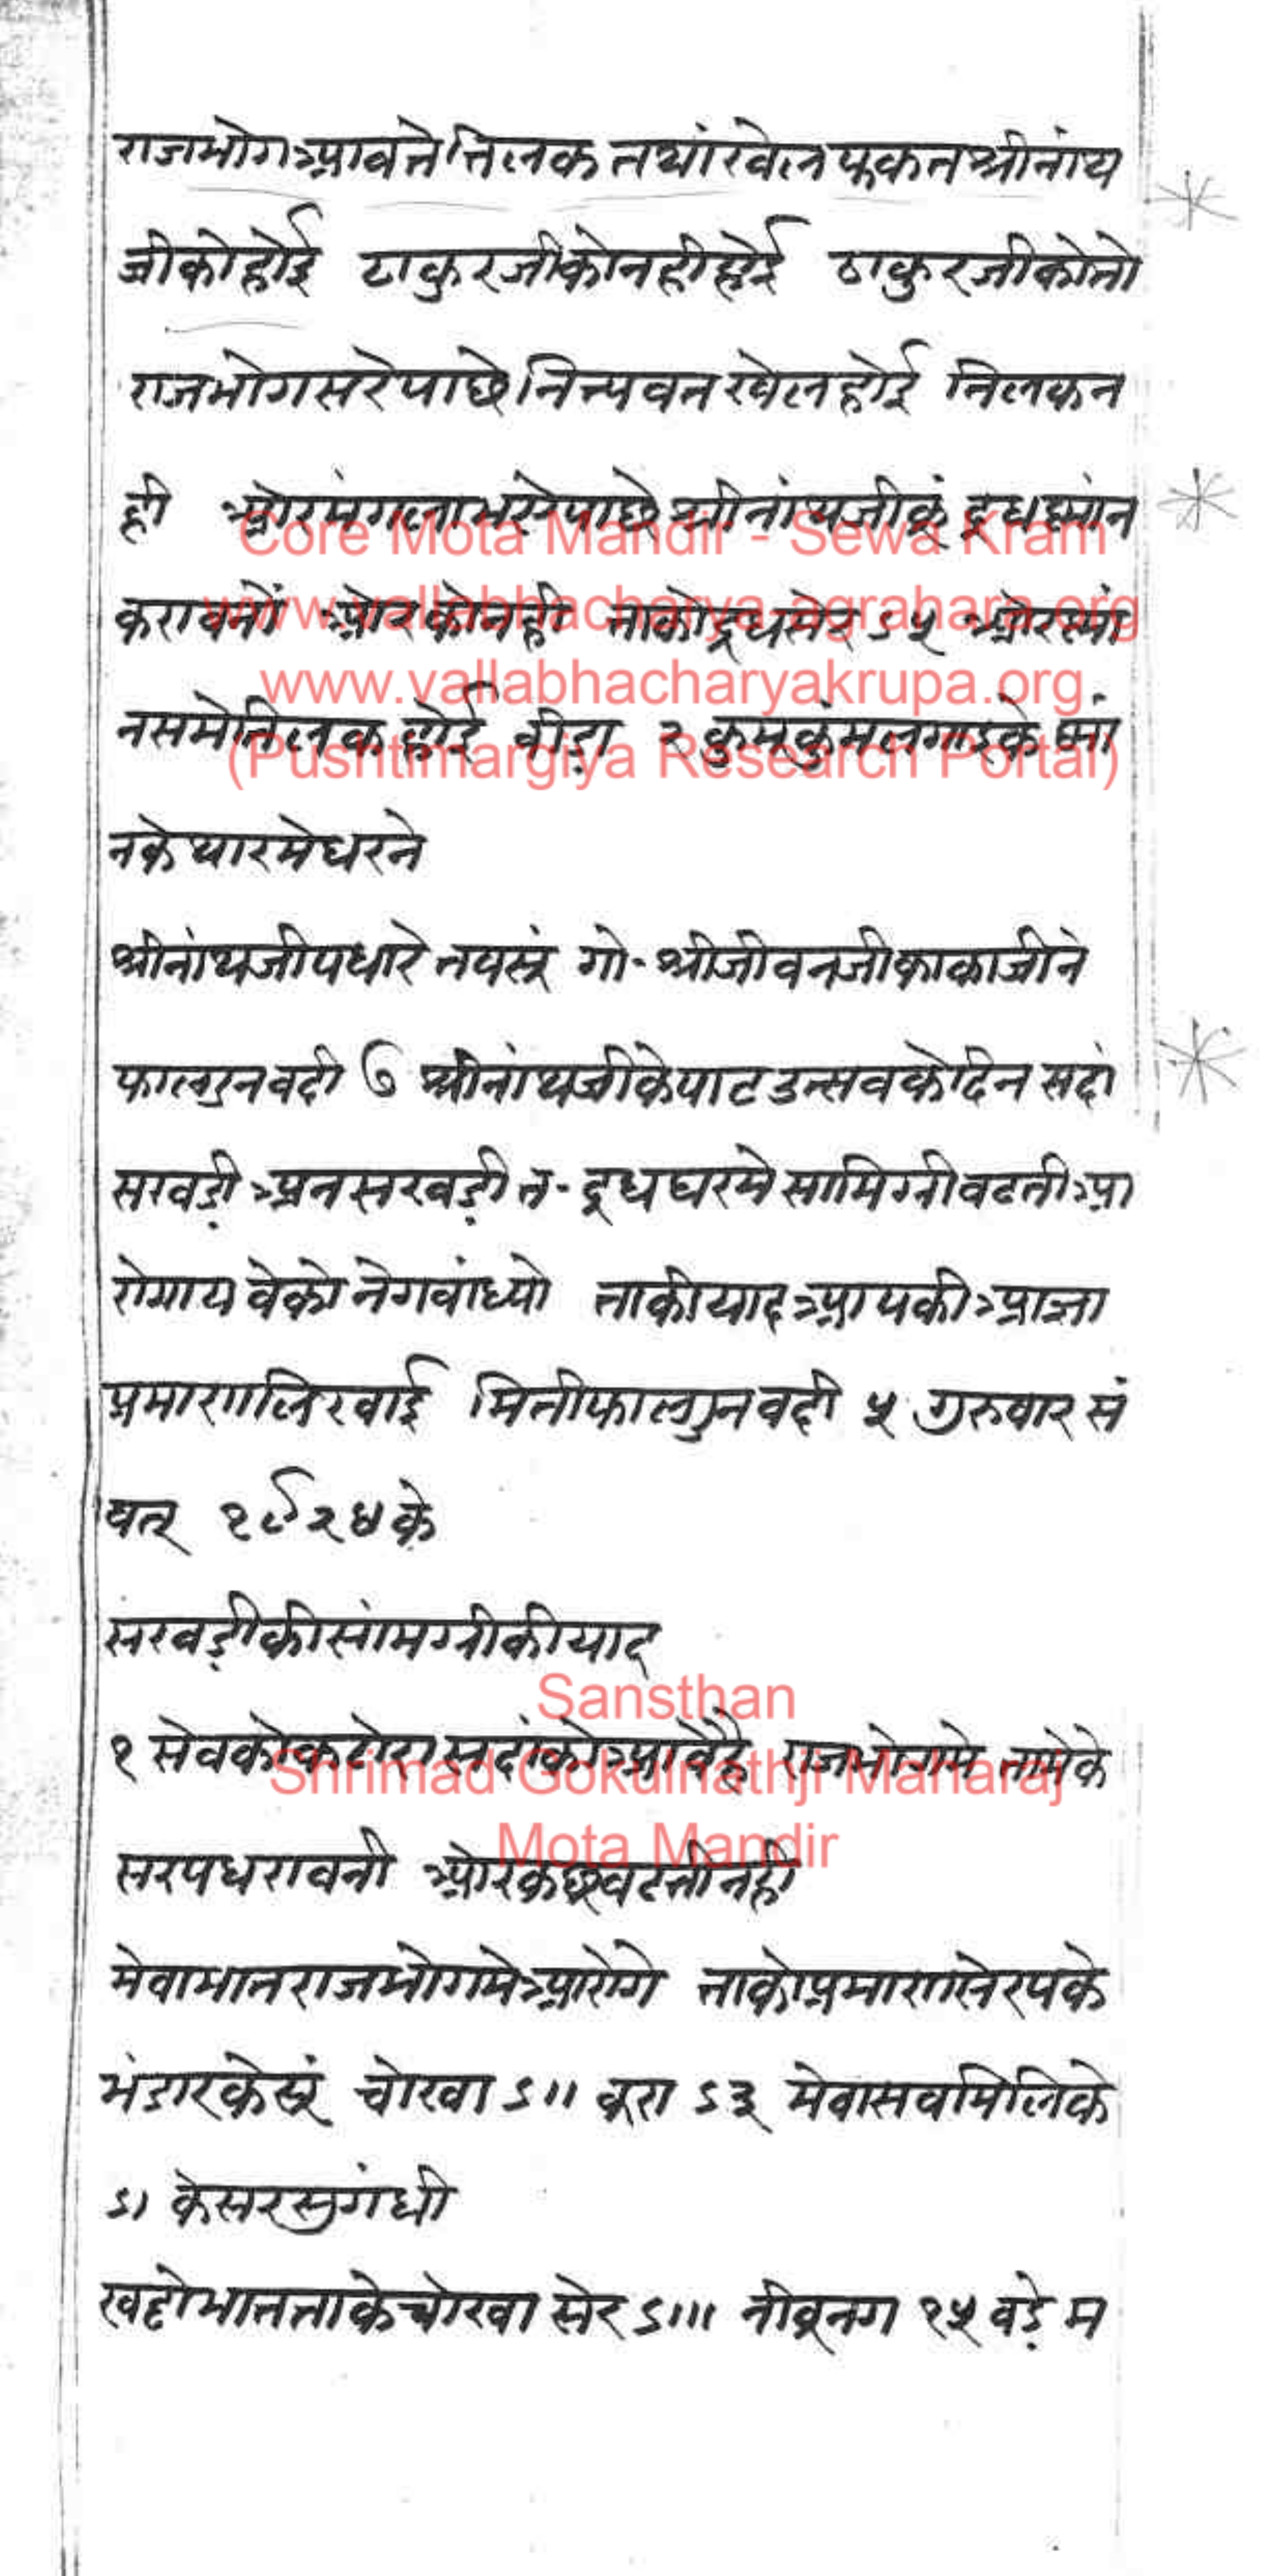 राजभोग आवते तिलक तथां खेल फकत श्रीनांथ
जीकोहोई ठाकुरजीकोनहीहोई ठाकुरजीकोतो
राजभोगसरेपाछेनित्यवत खेलहोई तिलकन
ही ओरमंगलाभयेपाछे श्रीनांथजीकूं दूधस्नांन
करावनों ओरकोनही ताकोदूधसेर ऽ५ ओरस्नां
नसमेतिलकहोई बीडा २ कुमकुंमलगाइके स्नां
नकेथारमेधरने
श्रीनांथजीपधारे तबसूं गो॰ श्रीजीवनजीकाकाजीने
फाल्गुनवदी ७ श्रीनांथजीकेपाटउत्सवकोदिन सदां
सखड़ी अनसखड़ी त॰ दूधघरमे सामिग्रीवढती आ
रोगायवेको नेगबांध्यो ताकीयाद आपकी आज्ञा
प्रमाणलिखाई मितीफाल्गुनवदी ५ गुरुवार सं
वत् १९२४ के
सखड़ीकीसांमग्रीकीयाद
१ सेवकोकटोरा सदांकोआवेहै राजभोगमे तामेके
सरपधरावनी ओरकछूवढतीनही
मेवाभातराजभोगमेआरोगे ताकोप्रमाणसेरपके
भंडारकेसूं चोखा ऽ॥ बूरा ऽ३ मेवासर्वमिलिके
ऽ। केसरसुगंधी
खट्टोभातताकेचोखा सेर ऽ॥। नीबूनग १५ बड़े म
Core Mota Mandir - Sewa Kram
www.vallabhacharya-agrahara.org
www.vallabhacharyakrupa.org
(Pushtimargiya Research Portal)
Sansthan
Shrimad Gokulnathji Maharaj
Mota Mandir